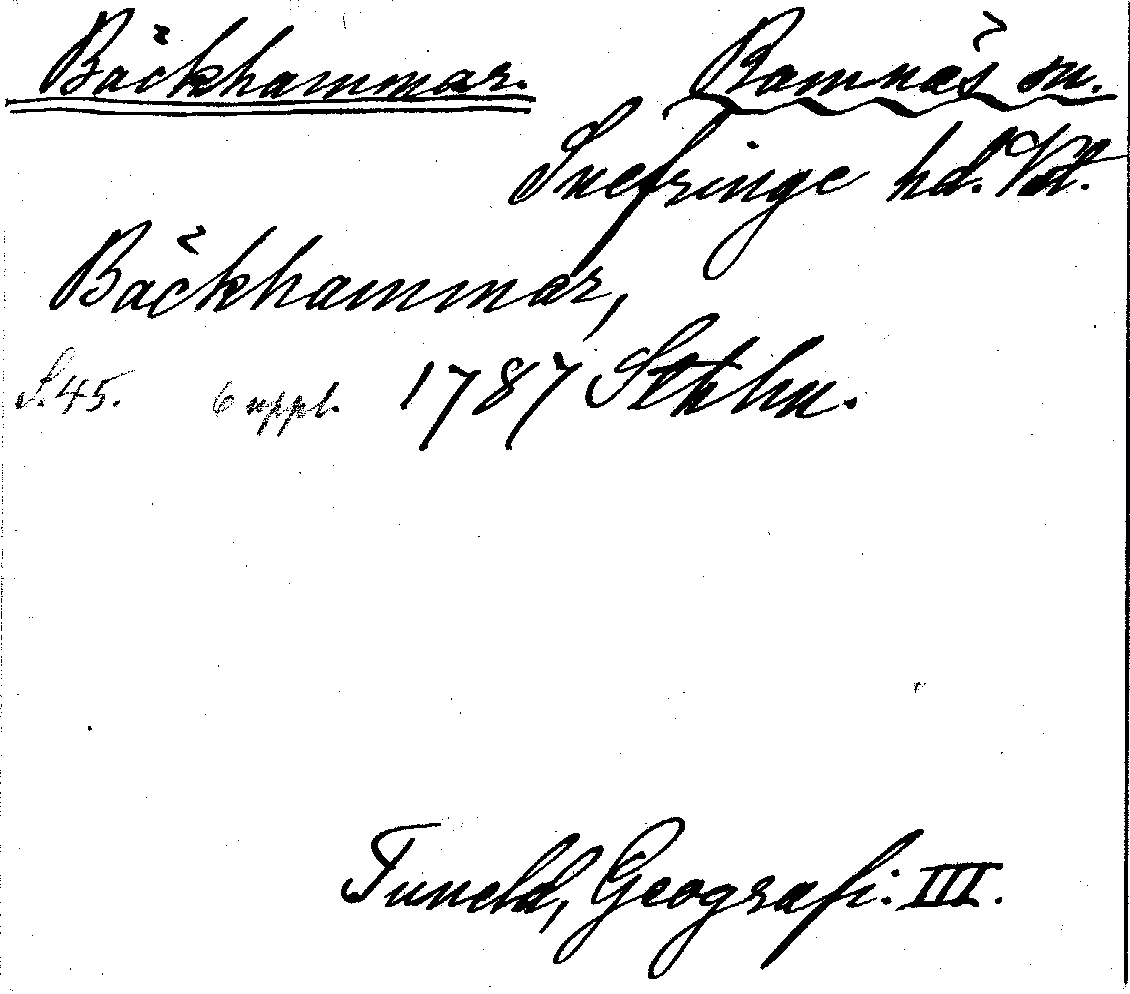 Bäckhammar. Ramnäs sn.
Snefringe hd. Vstl.
Bäckhammar,
S. 45. 6 uppl. 1787 Sthlm.
Tuneld, Geografi. III.